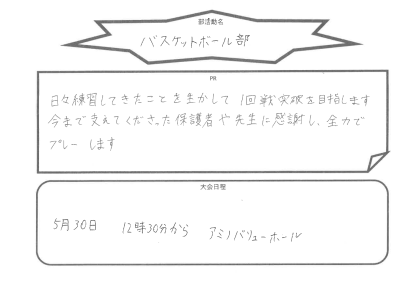 部活動名
バスケットボール部
PR
日々練習してきたことを生かして 1回戦突破を目指します
今まで支えてくださった保護者や先生に感謝し、全力で
プレーします
大会日程
5月30日 12時30分から アミノバリューホール